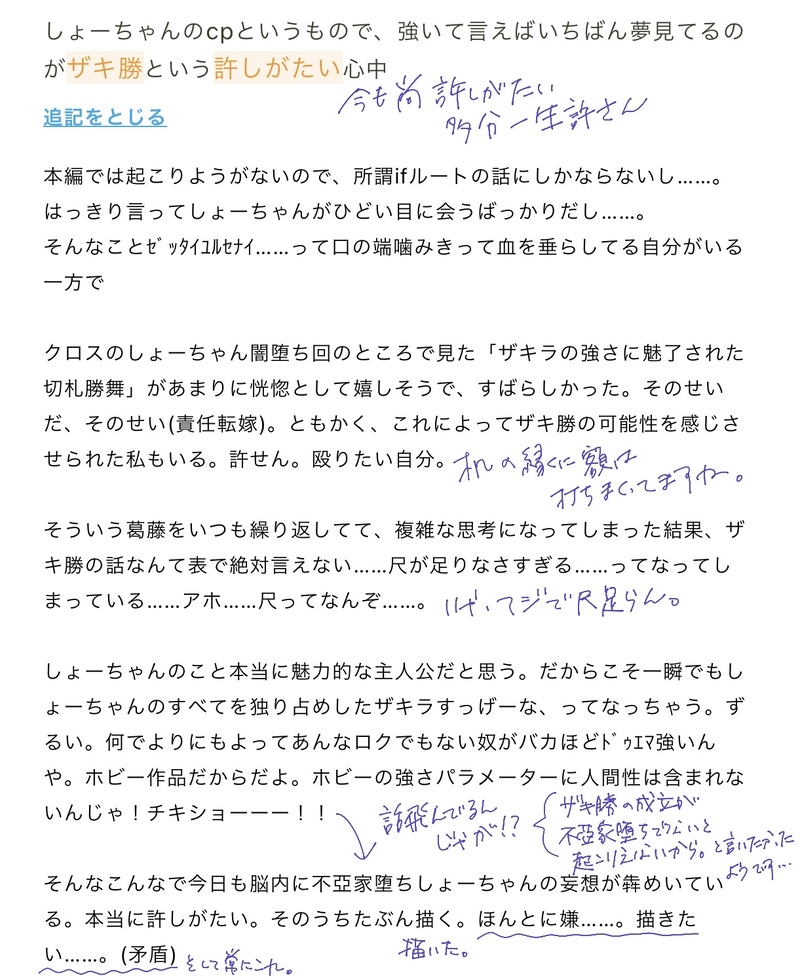 しょーちゃんのcpというもので、強いて言えばいちばん夢見てるの
がザキ勝という許しがたい心中
今も尚 許しがたい
多分一生許さん
追記をとじる
本編では起こりようがないので、所謂ifルートの話にしかならないし……。
はっきり言ってしょーちゃんがひどい目に会うばっかりだし……。
そんなことｾﾞｯﾀｲﾕﾙｾﾅｲ……って口の端噛みきって血を垂らしてる自分がいる
一方で
クロスのしょーちゃん闇堕ち回のところで見た「ザキラの強さに魅了された
切札勝舞」があまりに恍惚として嬉しそうで、すばらしかった。そのせい
だ、そのせい(責任転嫁)。ともかく、これによってザキ勝の可能性を感じさ
せられた私もいる。許せん。殴りたい自分。
机の縁くに額は
打ちまくってますね。
そういう葛藤をいつも繰り返してて、複雑な思考になってしまった結果、ザ
キ勝の話なんて表で絶対言えない……尺が足りなさすぎる……ってなってし
まっている……アホ……尺ってなんぞ……。
いや、マジで尺足らん。
しょーちゃんのこと本当に魅力的な主人公だと思う。だからこそ一瞬でもし
ょーちゃんのすべてを独り占めしたザキラすっげーな、ってなっちゃう。ず
るい。何でよりにもよってあんなロクでもない奴がバカほどﾄﾞｩｴﾏ強いん
や。ホビー作品だからだよ。ホビーの強さパラメーターに人間性は含まれな
いんじゃ！チキショーーー！！
話飛んでるん
じゃが!?
ザキ勝の成立が
不亞家堕ちでないと
起こりえないから。と言いたかった
ようです…
そんなこんなで今日も脳内に不亞家堕ちしょーちゃんの妄想が犇めいてい
る。本当に許しがたい。そのうちたぶん描く。ほんとに嫌……。描きた
い……。(矛盾)
描いた。
そして常にこれ。